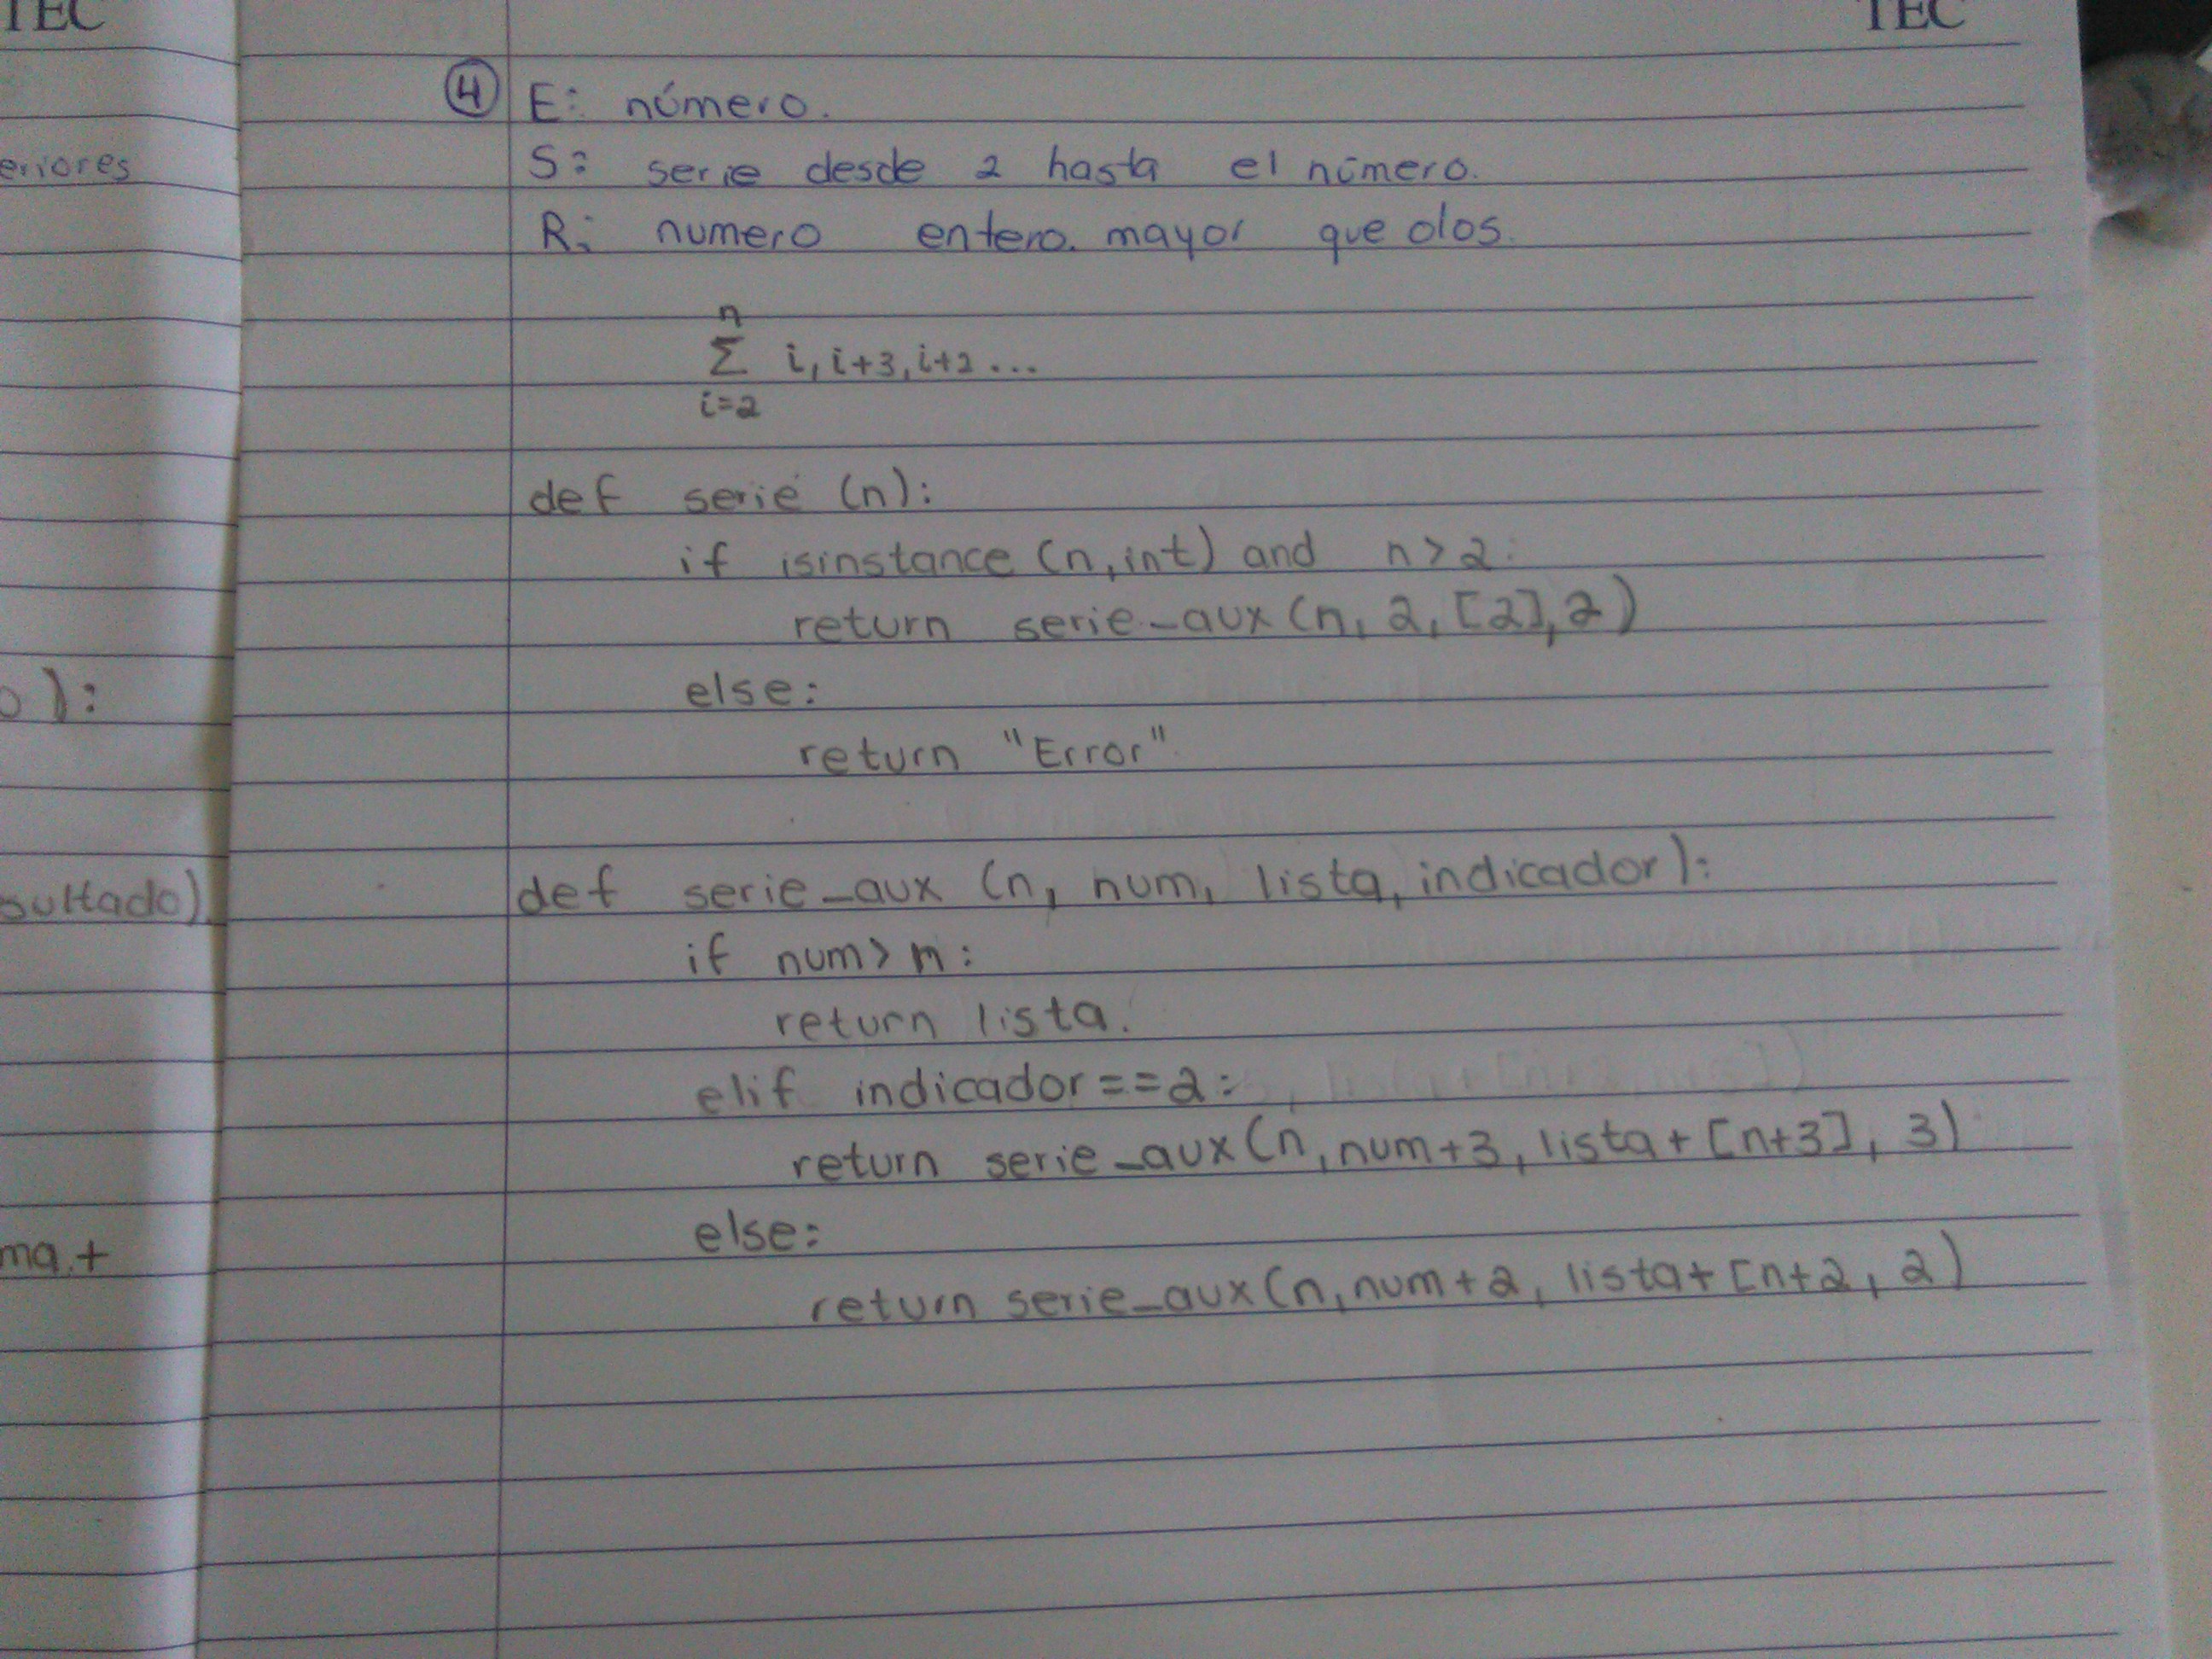 TEC
TEC
eriores
o):
sultado)
ma.+
④ E: número.
S: serie desde 2 hasta el número.
R: numero entero. mayor que dos.
n
Σ i, i+3, i+2 ...
i=2
def serie (n):
if isinstance (n, int) and n > 2:
return serie_aux (n, 2, [2], 2)
else:
return "Error"
def serie_aux (n, num, lista, indicador):
if num > n:
return lista.
elif indicador == 2:
return serie_aux (n, num+3, lista + [n+3], 3)
else:
return serie_aux (n, num+2, lista+ [n+2, 2)